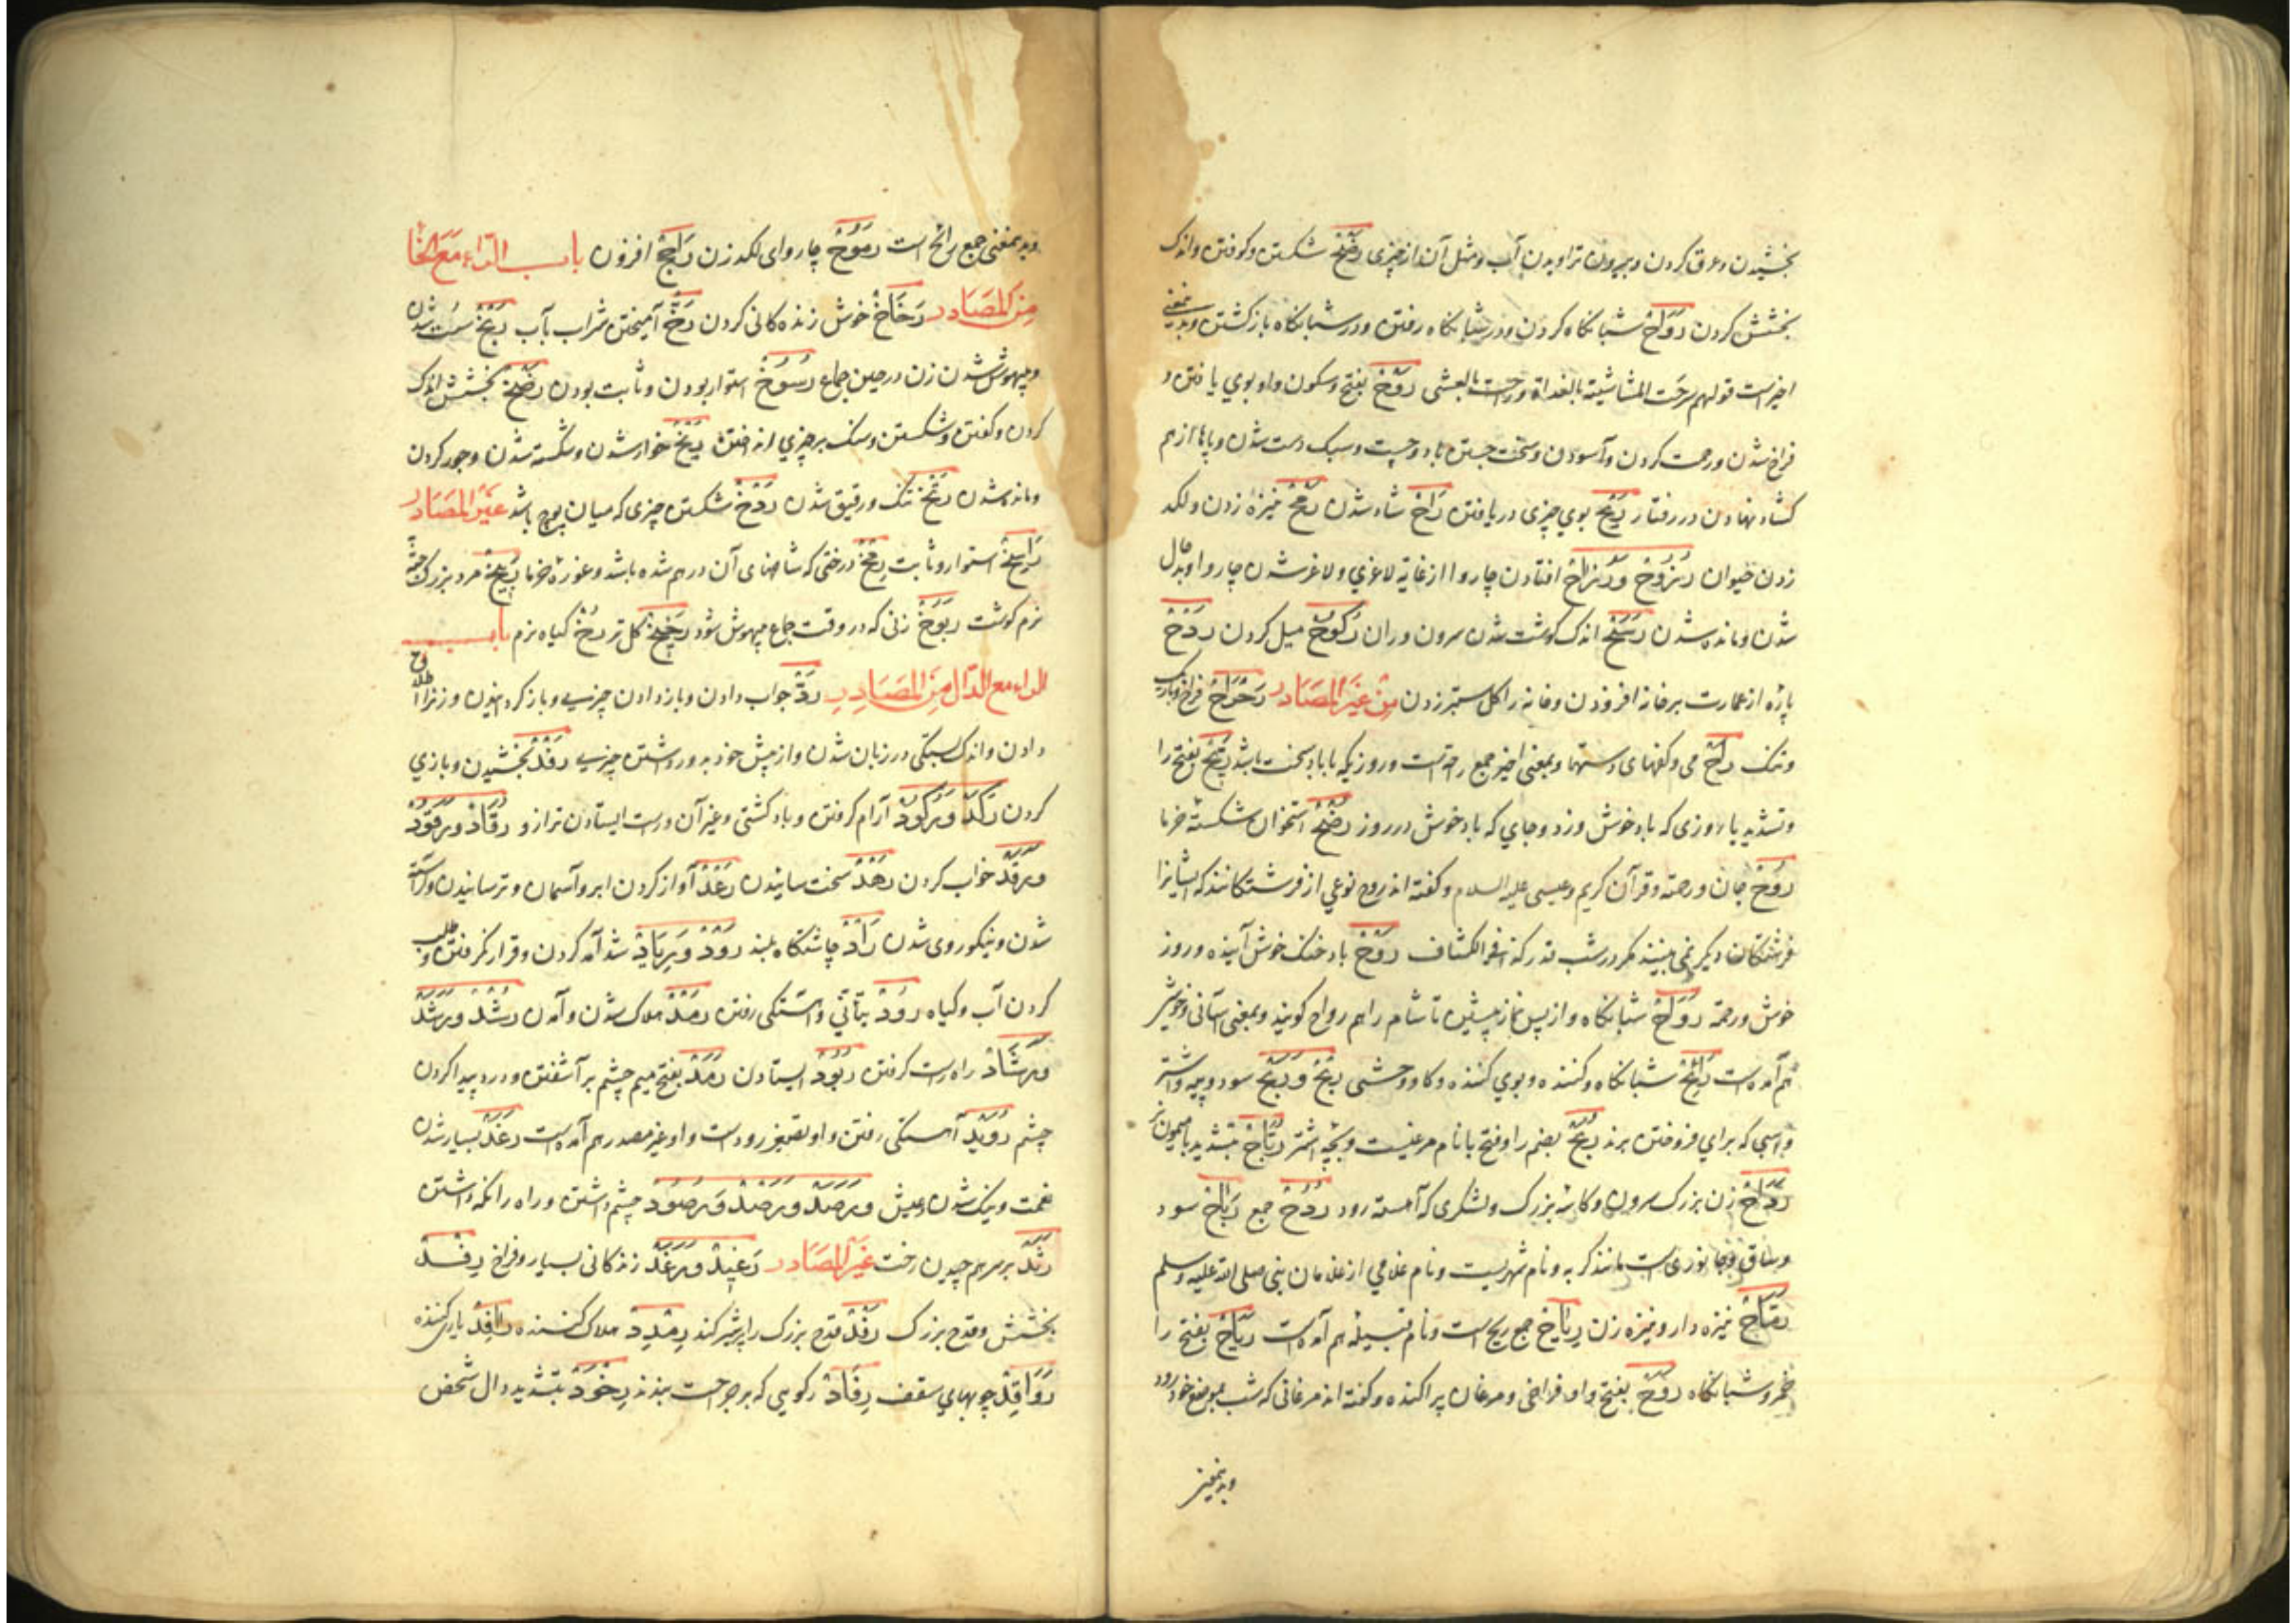 بخشیدن و عرق کردن و بیرون تراویدن آب و مثل آن از چیزی رضح شکستن و کوفتن و اندک
بخشش کردن رواح شبانکاه کردن و در شبانکاه رفتن و در شبانکاه باز کشتن و بدینمعنی
اخیرست قولهم سرحت الماشیة بالغداة و راحت بالعشی روح بفتح و سکون واو بوی یافتن و
فراخ شدن و رحمت کردن و آسودن و سخت جستن باد و چست و سبک دست شدن و پاها از هم
کشاد نهادن در رفتار ریح بوی چیزی دریافتن راح شاد شدن رمح نیزه زدن و لکد
زدن حیوان رزوح و رزاح افتادن چاروا از غایة لاغری و لاغر شدن چاروا و بدحال
شدن و مانده شدن رسح اندک کوشت شدن سرون و ران رکوح میل کردن ردح
پاره از عمارت بر خانه افزودن و خانه را کل ستبر زدن من غیر المصادر رحراح فراخ
و تنک راح می و کفهای دستها و بمعنی اخیر جمع راحتست و روزیکه با باد سخت باشد ریح بفتح را
و تشدید یا روزی که باد خوش وزد و جای که باد خوش درو وزد رضح استخوان شکسته خرما
روح جان و رحمة و قرآن کریم و عیسی علیه السلام و کفته اند روح نوعی از فرشتکانند که ایشانرا
فرشتکان دیکر نمی بینند مکر در شب قدر کذا فی الکشاف روح باد خنک خوش آینده و روز
خوش و رحمة رواح شبانکاه و از پس نماز پیشین تا شام را هم رواح کویند و بمعنی آسانی و خوشی
هم آمده است رائح شبانکاه کننده و بوی کننده و کاو وحشی ربح و ربح سود و پیه و اشتر
و اسبی که برای فروختن برند ربح بضم را و فتح با نام مرغیست و بچه اشتر رباح بتشدید با میمون نر
رداح زن بزرک سرون و کاسه بزرک و لشکری که آهسته رود ردح جمع رباح سود
و ساق و جانوری است مانند کربه و نام شهریست و نام غلامی از غلامان نبی صلی الله علیه و سلم
رماح نیزه دار و نیزه زن ریاح جمع ریح است و نام قبیله هم آمده است ریاح بفتح را
خمر و شبانکاه روح بفتح واو فراخی و مرغان پراکنده و کفته اند مرغانی که شب بموضع خود رود
و بدینمعنی
و بدینمعنی جمع رائح است رموح چاروای لکد زن راجح افزون باب الراء مع الخا
من المصادر رخاخ خوش زنده کانی کردن رخ آمیختن شراب بآب ربخ سست شدن
و بیهوش شدن زن در حین جماع رسوخ استوار بودن و ثابت بودن رضخ بخشش اندک
کردن و کفتن و شکستن و سنک بر چیزی انداختن ریخ خوار شدن و شکسته شدن و جور کردن
و مانده شدن رتخ تنک و رقیق شدن ردخ شکستن چیزی که میان پوچ باشد غیر المصادر
راسخ استوار و ثابت رمخ درختی که شاخهای آن در هم شده باشد و غوره خرما ربیخ مرد بزرک جثه
نرم کوشت ربوخ زنی که در وقت جماع بیهوش شود رخیخ کل تر رخ کیاه نرم باب
الراء مع الدال من المصادر رد جواب دادن و باز دادن چیزی و باز کردانیدن و زنرا طلاق
دادن و اندک بستکی در زبان شدن و از پیش خود بدور داشتن چیزی رفد بخشیدن و یاری
کردن رکد و رکود آرام کرفتن و باد کشتی و غیر آن و راست ایستادن ترازو رقاد و رقود
و رقد خواب کردن رهد سخت ساییدن رعد آواز کردن ابر و آسمان و ترسانیدن و آراسته
شدن و نیکو روی شدن راد چاشتکاه بلند رود و ریاد شد آمد کردن و قرار نکرفتن و طلب
کردن آب و کیاه رود بتأنی و آهستکی رفتن رمد هلاک شدن و آمدن رشد و رشد
و رشاد راه راست کرفتن ربود ایستادن رمد بفتح میم چشم بر آشفتن و درد پیدا کردن
چشم روید آهستکی رفتن و او تصغیر رودست و او غیر مصدر هم آمده است رغد بسیار شدن
نعمت و نیک شدن عیش و رصد و رصد و رصود چشم داشتن و راه را نکه داشتن
رثد بر سر هم چیدن رخت غیر المصادر رغید و رغد زندکانی بسیار و فراخ رفد
بخشش و قدح بزرک رفد قدح بزرک را پر شیر کند رمدد هلاک کننده رافد یاری کننده
روافد چوبهای سقف رفاد رکویی که بر جراحت بندند رخود بتشدید دال شخص